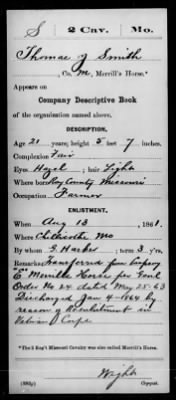 S 2 Cav. Mo.
Thomas J Smith
, Co. M, Merrill's Horse.*
Appears on
Company Descriptive Book
of the organization named above.
DESCRIPTION.
Age 21 years; height 5 feet 7 inches.
Complexion Fair
Eyes Hazel ; hair Light
Where born Ray County Missouri
Occupation Farmer
ENLISTMENT.
When Aug 13 , 1861.
Where Chillicothe Mo
By whom G. Harker ; term 3 y'rs.
Remarks: Transferred from Company
"E" Merrills Horse per Genl
Order No 24 dated May 25-63
Discharged Jan 4-1864 by
reason of Reenlistment in
Veteran Corps
*The 2 Reg't Missouri Cavalry was also called Merrill's Horse.
Wright
(383g) Copyist.